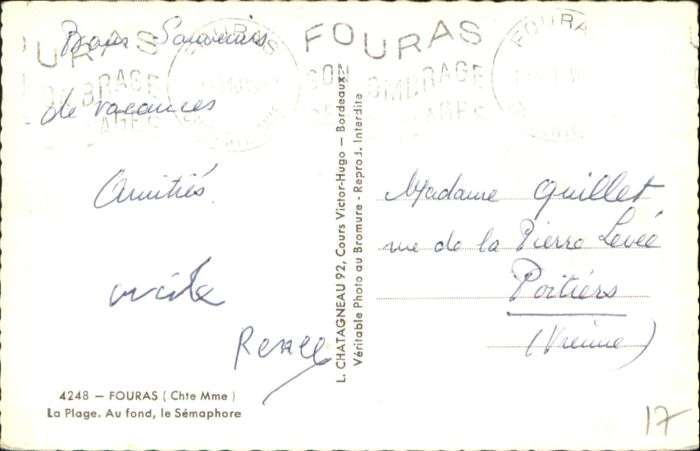 FOURAS
Bons Souvenirs
de vacances
Amitiés
Renée
4248 — FOURAS ( Chte Mme )
La Plage. Au fond, le Sémaphore
L. CHATAGNEAU 92, Cours Victor-Hugo — Bordeaux
Véritable Photo au Bromure - Reprod. Interdite
FOURAS
SON OMBRAGE
FOURAS
Madame Quillet
rue de la Pierre Levée
Poitiers
(Vienne)
17